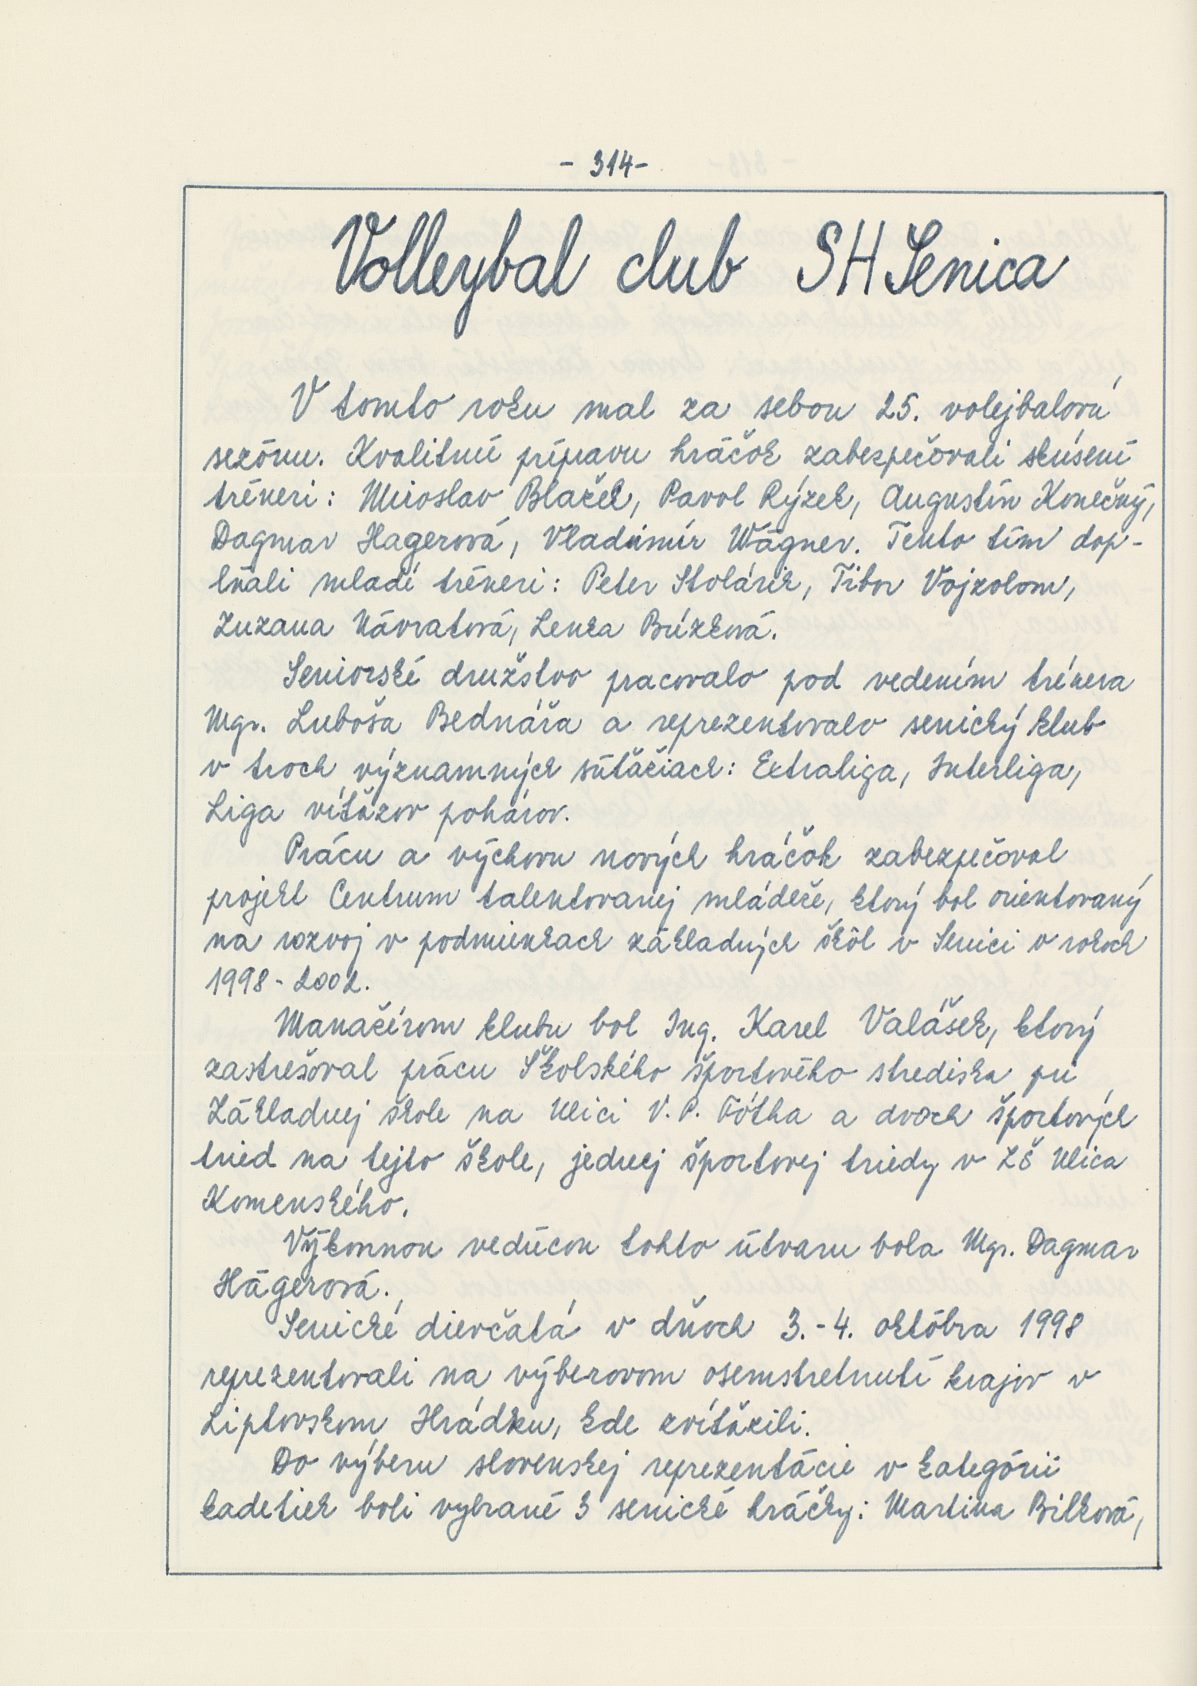 - 314 -
Volleybal club SH Senica
V tomto roku mal za sebou 25. volejbalovú
sezónu. Kvalitnú prípravu hráčok zabezpečovali skúsení
tréneri: Miroslav Blažek, Pavol Rýzek, Augustín Konečný,
Dagmar Hagerová, Vladimír Wágner. Tento tím dop-
lňali mladí tréneri: Peter Stolárik, Tibor Vojzolom,
Zuzana Návratová, Lenka Brízková.
Seniorské družstvo pracovalo pod vedením trénera
Mgr. Luboša Bednářa a reprezentovalo senický klub
v troch významných súťažiach: Extraliga, Interliga,
Liga víťazov pohárov.
Prácu a výchovu nových hráčok zabezpečoval
projekt Centrum talentovanej mládeže, ktorý bol orientovaný
na rozvoj v podmienkach základných škôl v Senici v rokoch
1998 - 2002.
Manažérom klubu bol Ing. Karel Valášek, ktorý
zastrešoval prácu Školského športového strediska pri
Základnej škole na Ulici V. P. Tótha a dvoch športových
tried na tejto škole, jednej športovej triedy v ZŠ Ulica
Komenského.
Výkonnou vedúcou tohto útvaru bola Mgr. Dagmar
Hágerová.
Senické dievčatá v dňoch 3. - 4. októbra 1998
reprezentovali na výberovom osemstretnutí krajov v
Liptovskom Hrádku, kde zvíťazili.
Do výberu slovenskej reprezentácie v kategórii
kadetiek boli vybrané 3 senické hráčky: Martina Bilková,